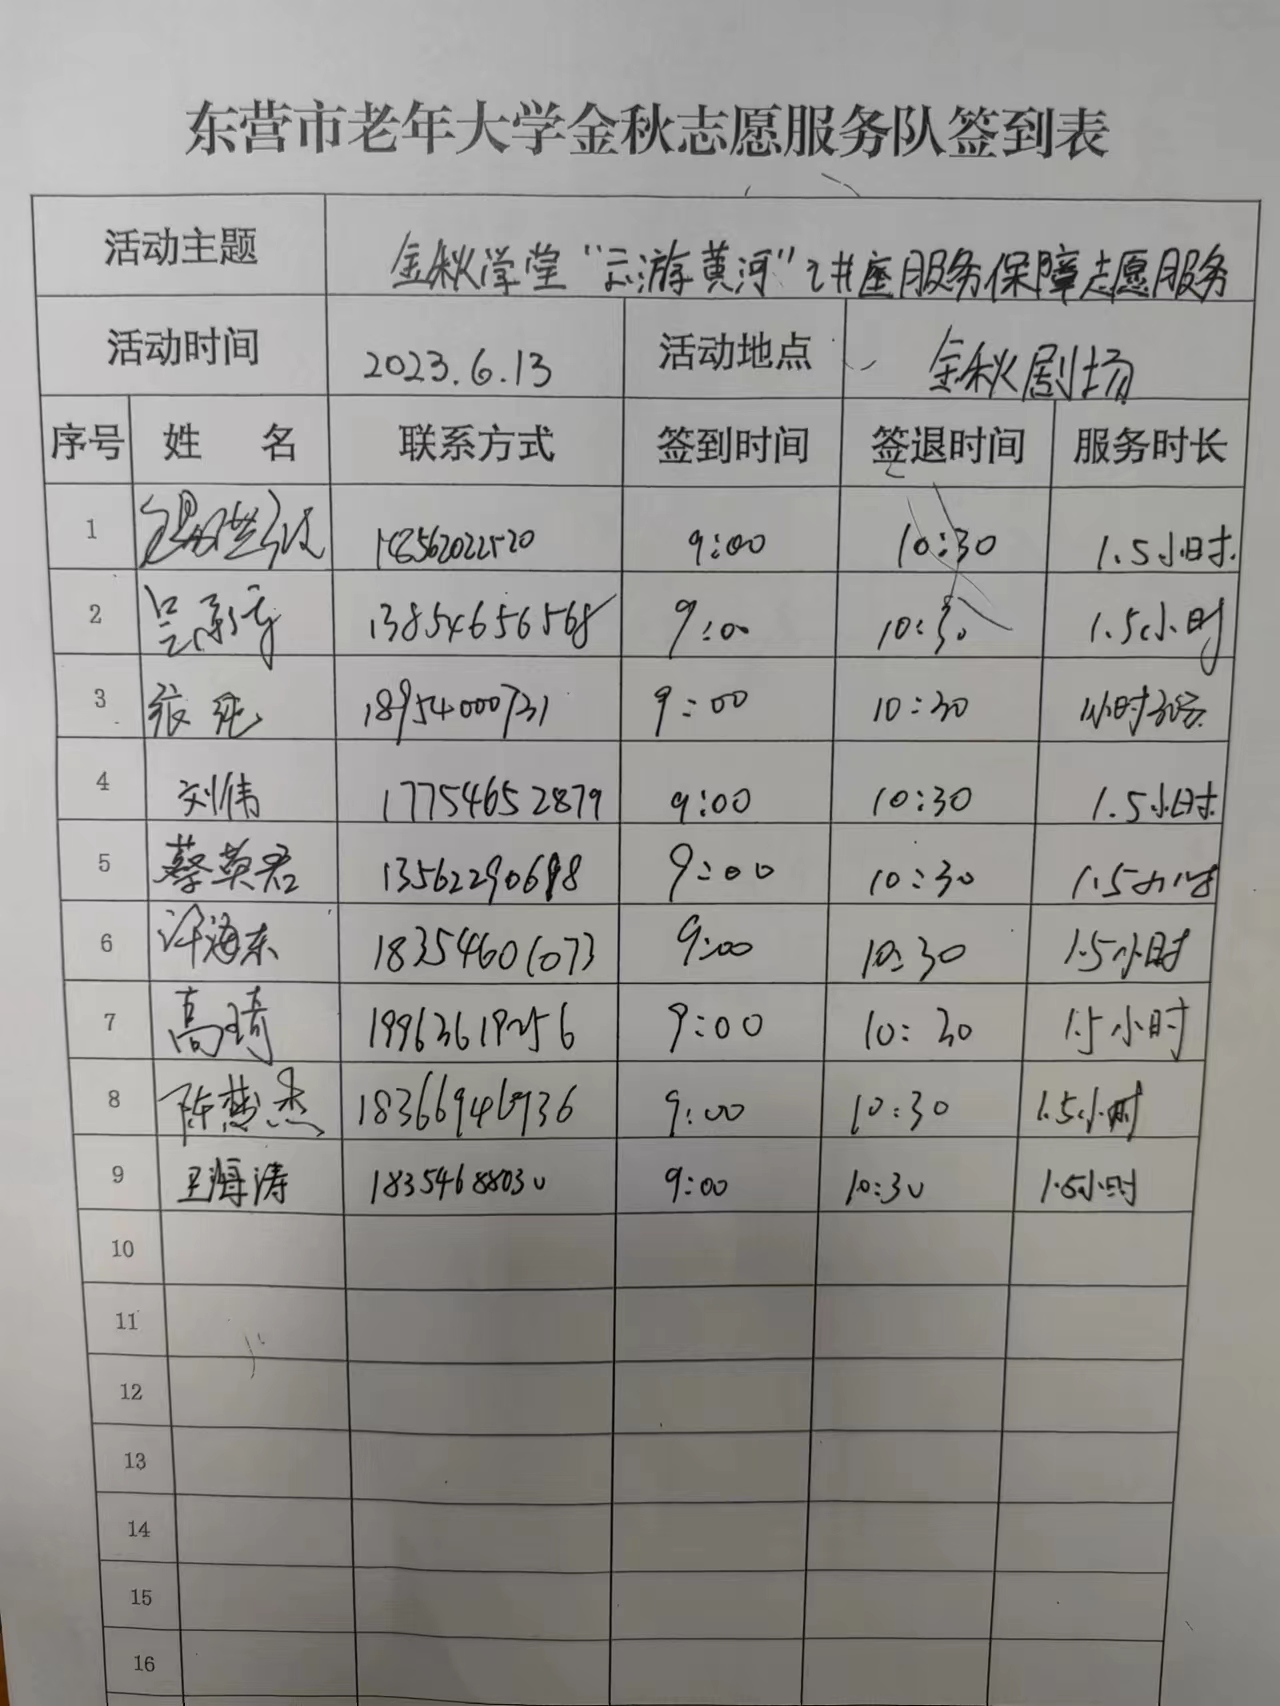 东营市老年大学金秋志愿服务队签到表
活动主题 金秋学堂“云游黄河”讲座服务保障志愿服务
活动时间 2023.6.13 活动地点 金秋剧场
序号 姓名 联系方式 签到时间 签退时间 服务时长
1 9:00 10:30 1.5小时
2 13854656568 9:00 10:30 1.5小时
3 张 18954000731 9:00 10:30 1小时30分
4 刘伟 17754652879 9:00 10:30 1.5小时
5 蔡英君 13562290698 9:00 10:30 1.5小时
6 许海东 18354601073 9:00 10:30 1.5小时
7 高琦 19963619256 9:00 10:30 1.5小时
8 陈慧杰 18366946936 9:00 10:30 1.5小时
9 王海涛 18354688030 9:00 10:30 1.5小时
10
11
12
13
14
15
16